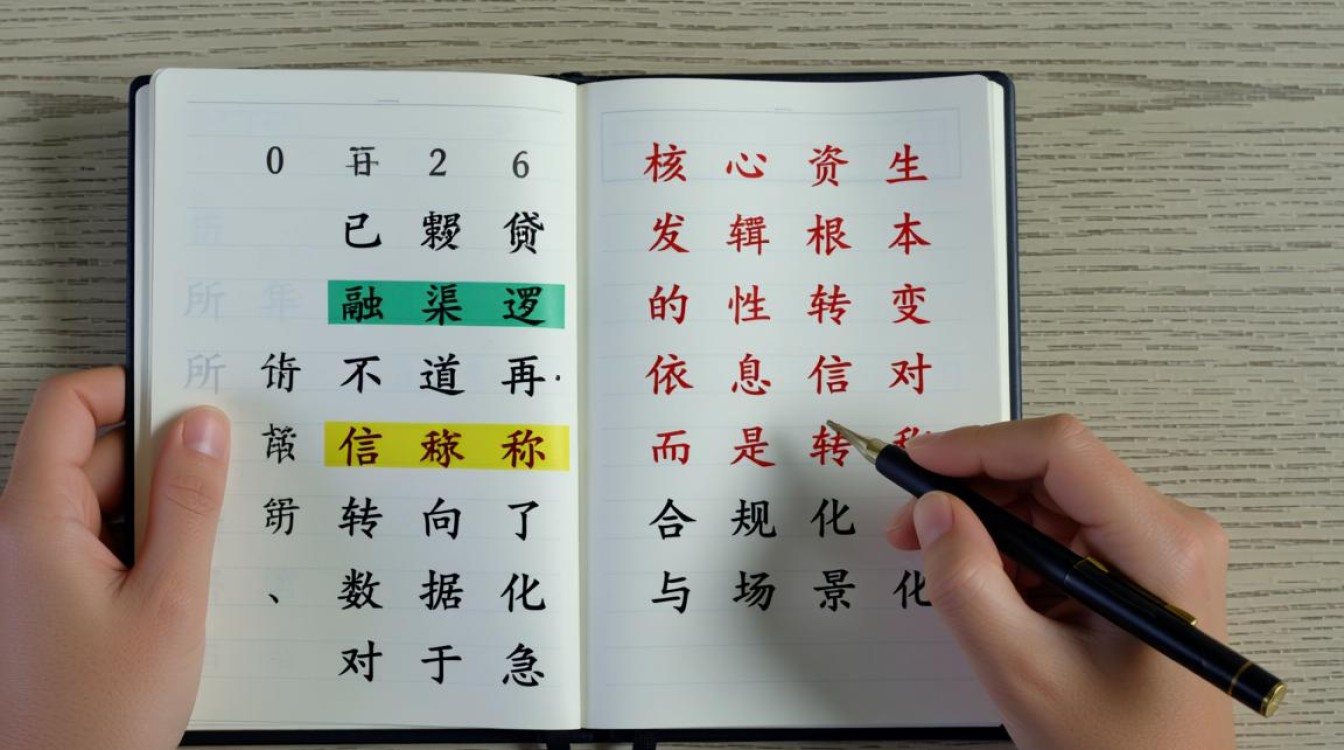 0 2 6
已 贷
融 渠 逻
不 道 再
信 称
转 向 了
、 数 据 化
对 于 急
核 心 资 生
发 辑 根 本
的 性 转 变
依 息 信 对
而 是 转
合 规 化
与 场 景 化